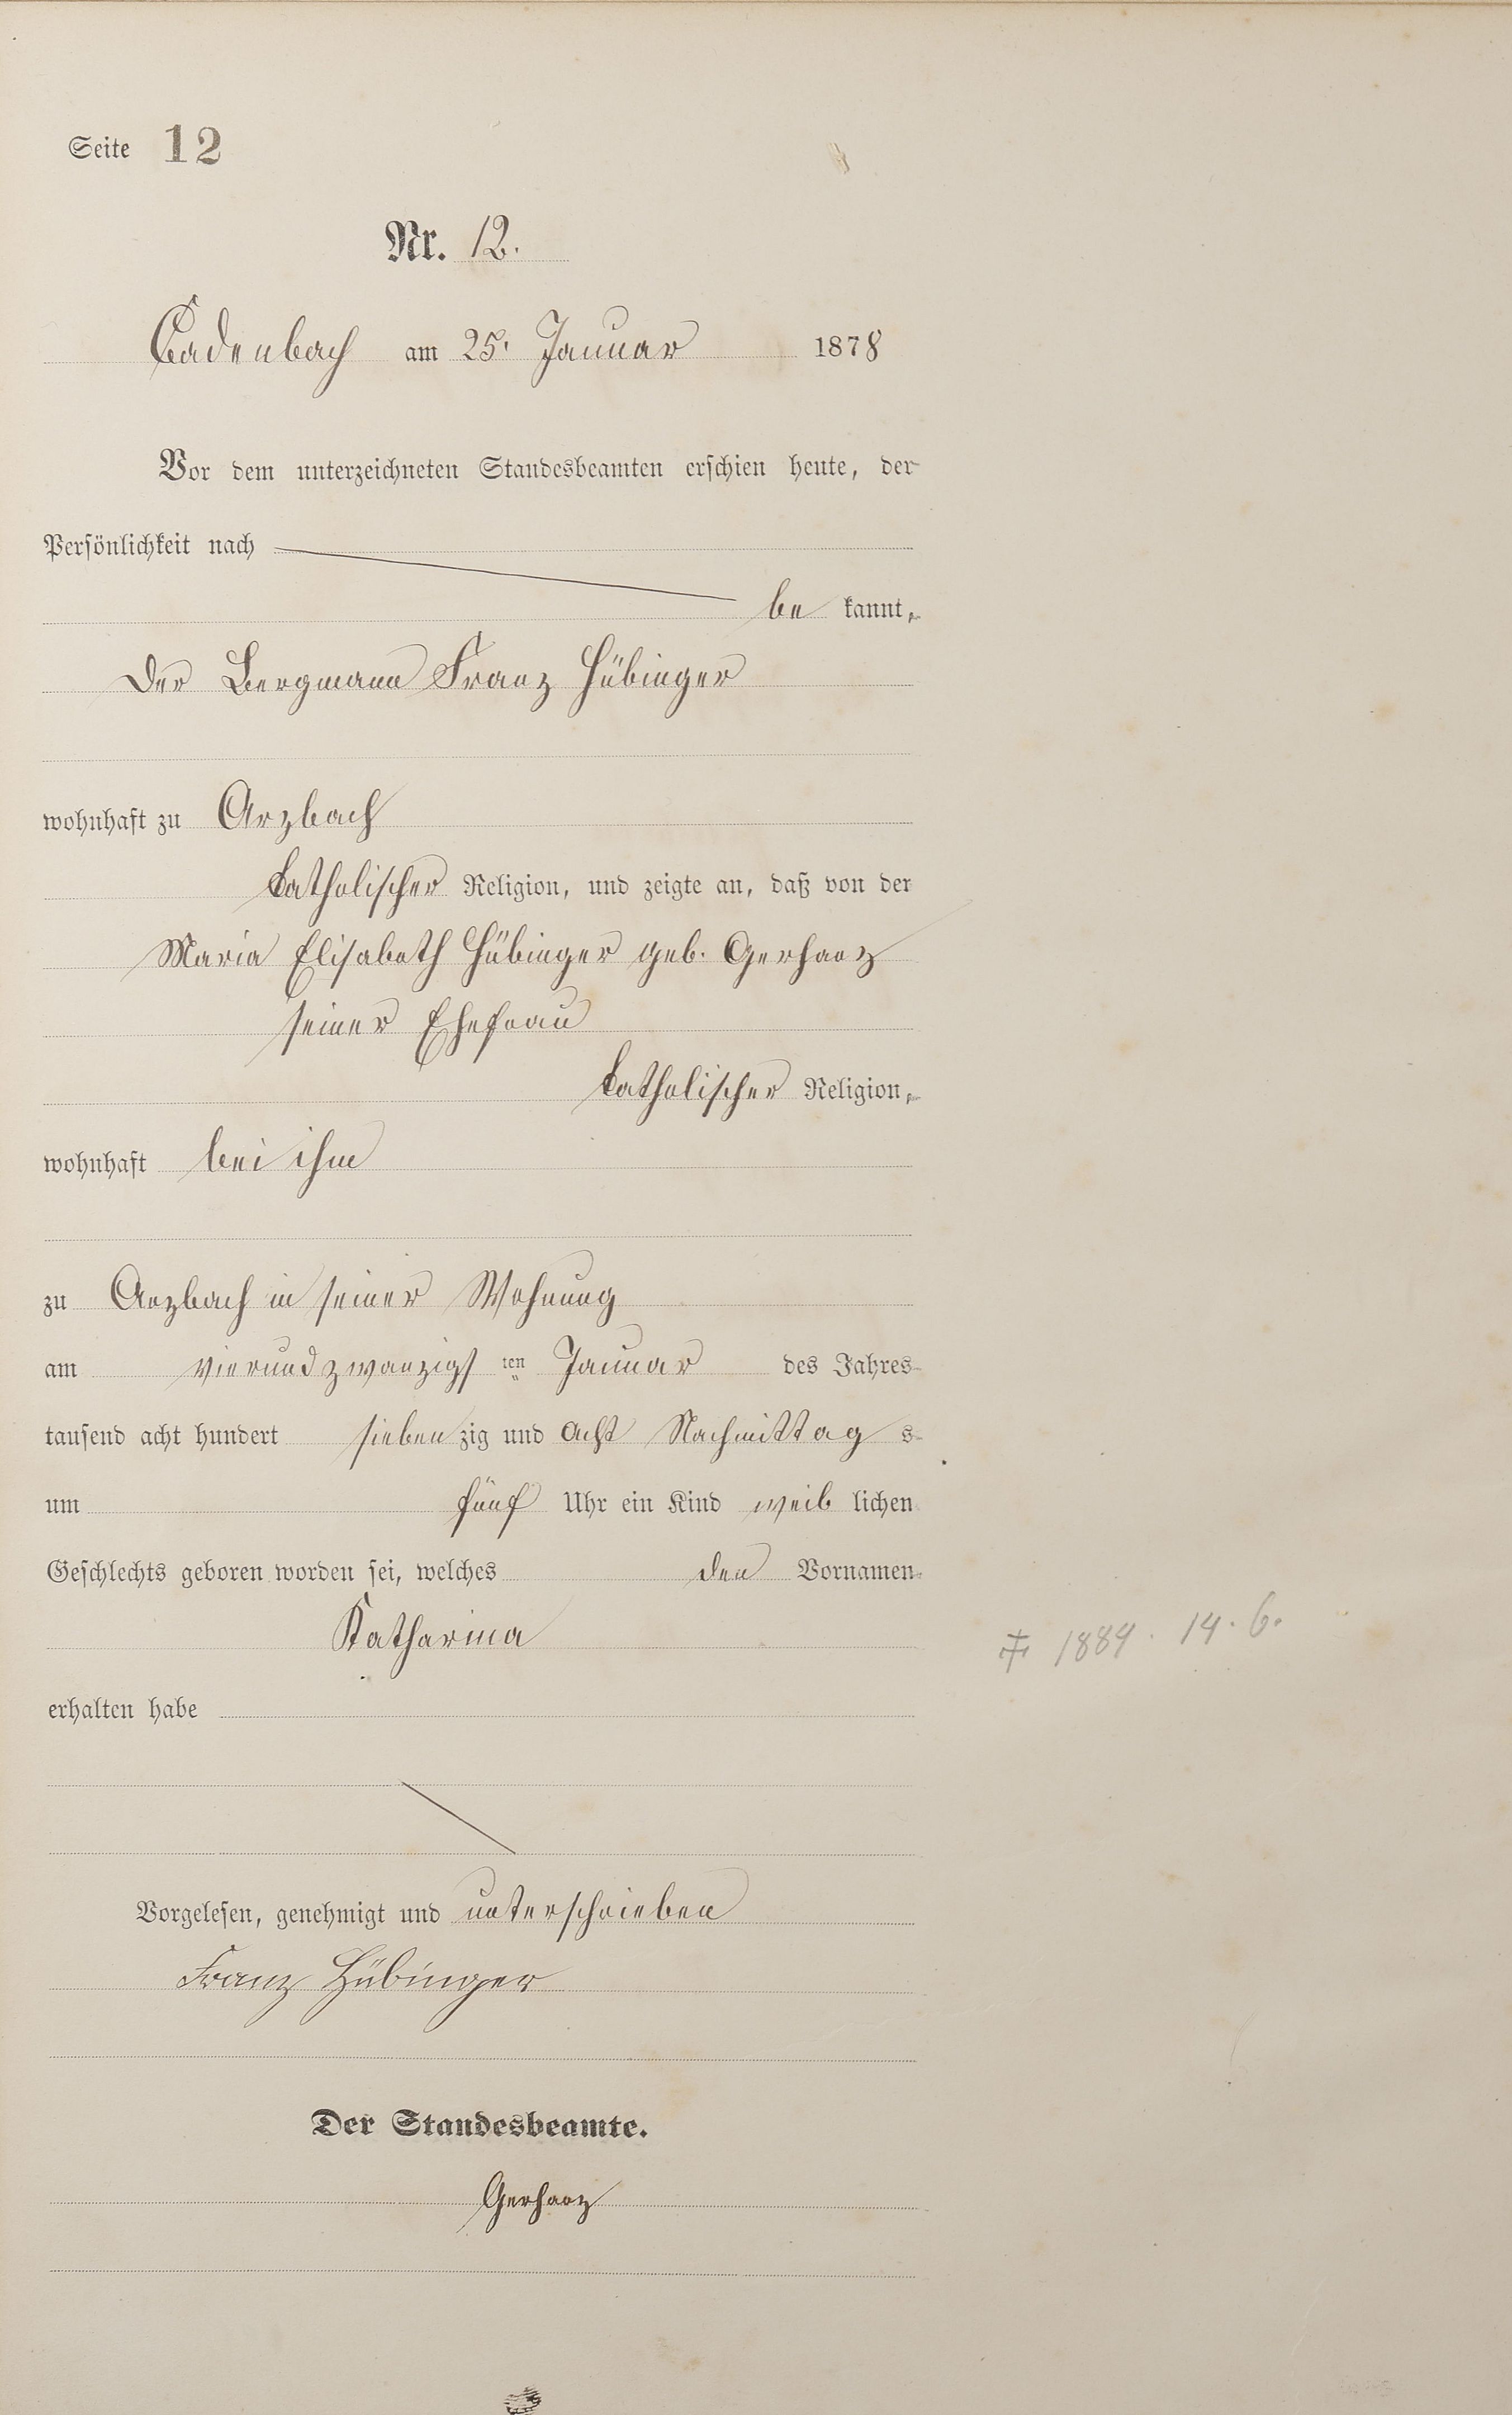 Seite 12
Nr. 12.
Cadenbach am 25. Januar 1878
Vor dem unterzeichneten Standesbeamten erschien heute, der
Persönlichkeit nach
be kannt,
Der Bergmann Franz Hübinger
wohnhaft zu Arzbach
katholischer Religion, und zeigte an, daß von der
Maria Elisabeth Hübinger geb. Gerharz
seiner Ehefrau
katholischer Religion,
wohnhaft bei ihm
zu Arzbach in seiner Wohnung
am vierundzwanzigs ten Januar des Jahres
tausend acht hundert sieben zig und acht Nachmittag s
um fünf Uhr ein Kind weib lichen
Geschlechts geboren worden sei, welches den Vornamen
Katharina
‡ 1884. 14. 6.
erhalten habe
Vorgelesen, genehmigt und unterschrieben
Franz Hübinger
Der Standesbeamte.
Gerharz